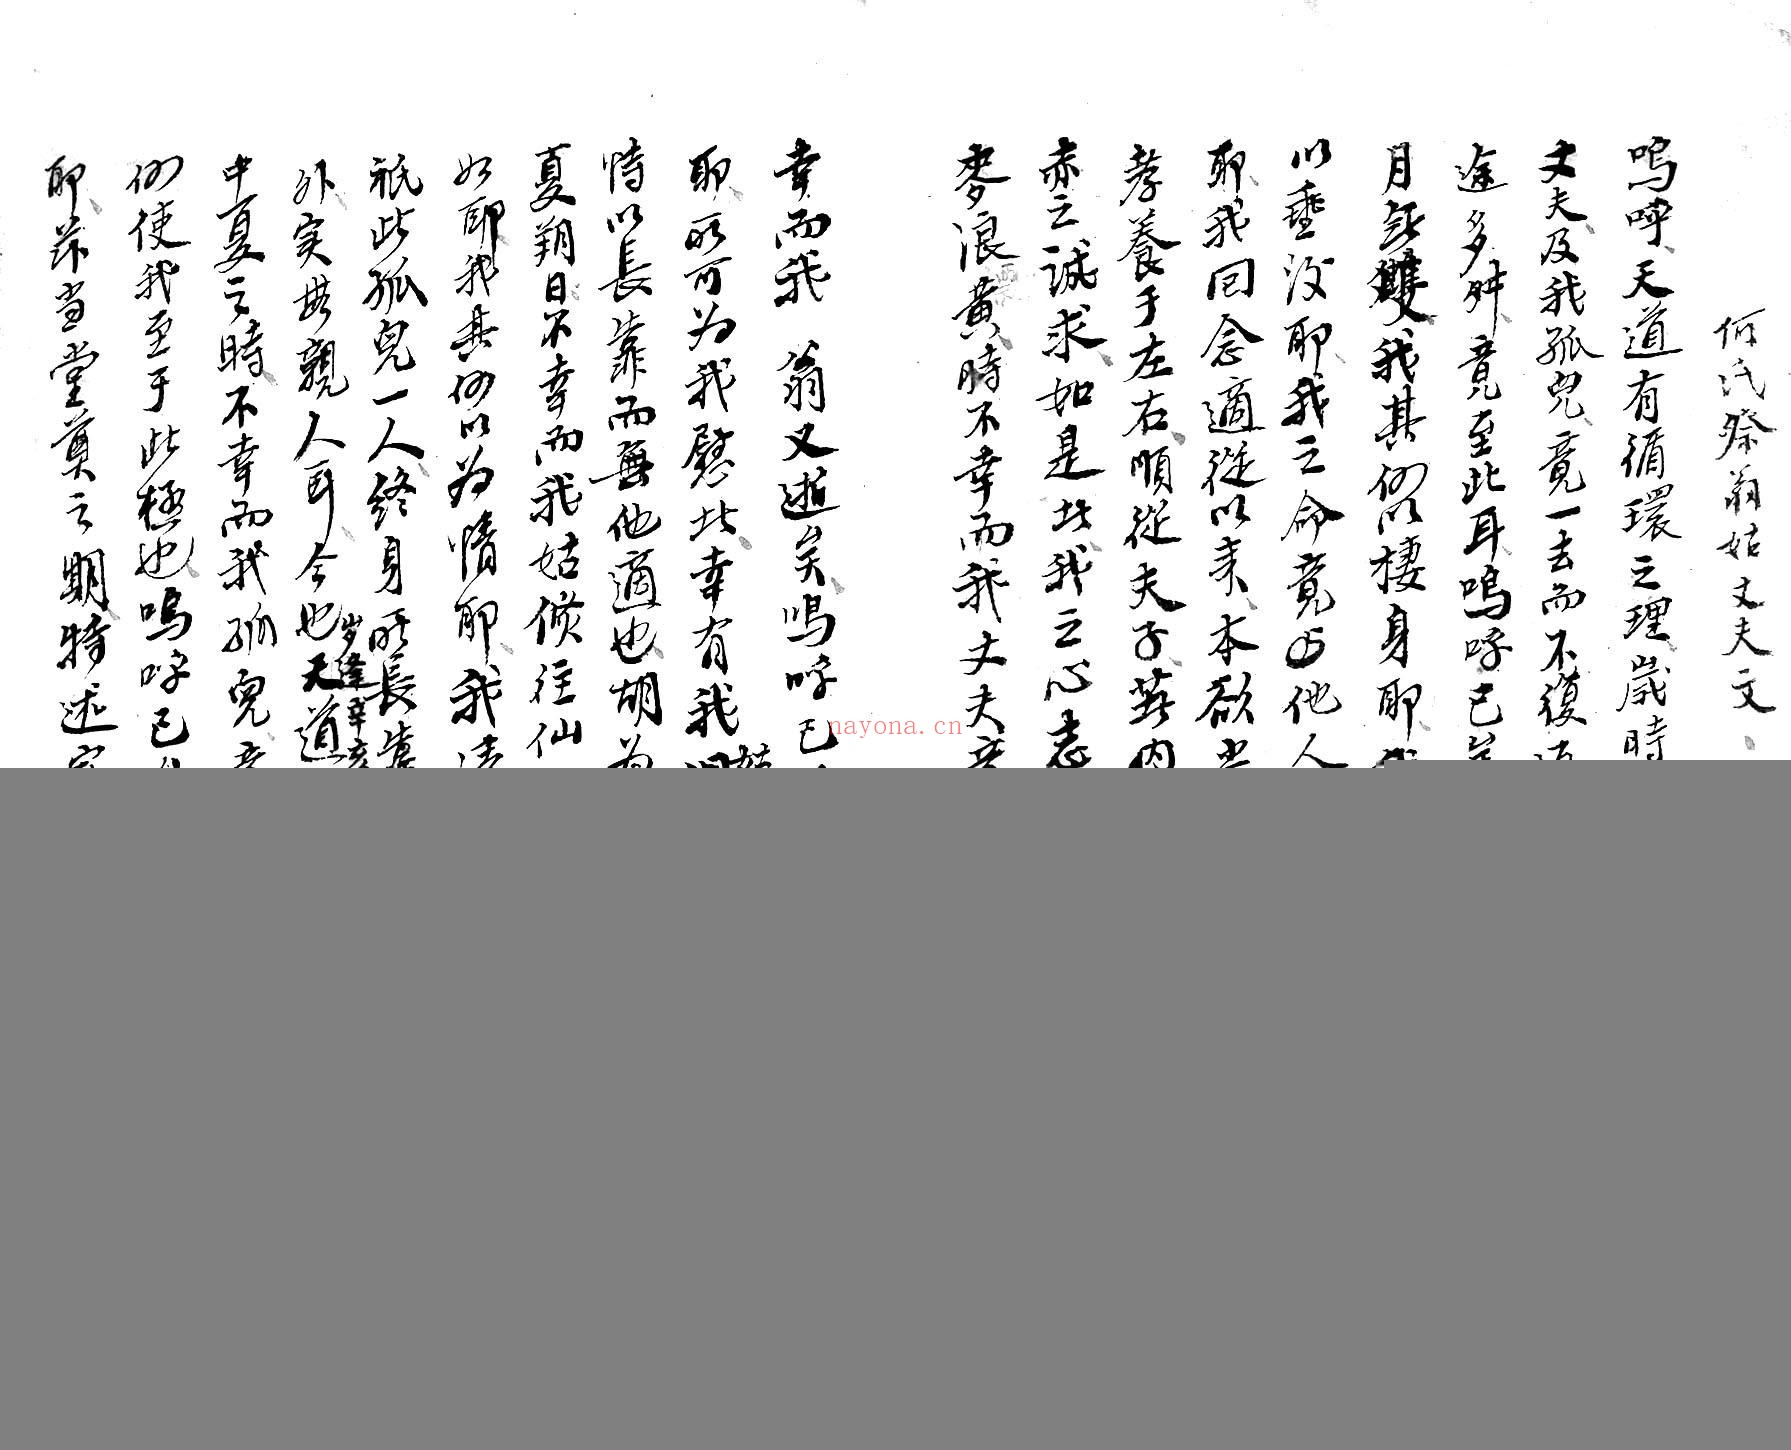 何氏祭翁姑丈夫文
嗚呼天道有循環之理歲時
丈夫及我孤兒竟一去而不復
途多舛竟至此耳嗚呼已矣
月無雙我其何以棲身耶
以垂沒耶我之命竟與他人
耶我回念適從以來本欲
孝養于左右順從夫子無內
赤之誠求如是此我之心志
麥浪黃時不幸而我丈夫竟
幸而我 翁又逝矣嗚呼已
耶所可为我慰此幸有我姑
恃以長靠而無他適也胡为
夏朔日不幸而我姑倏往仙
如耶我其何以为情耶我
祇此孤兒一人終身所長靠
外実無親人耳今也歲逢辛亥天道
中夏之時不幸而我孤兒竟
何使我至于此極也嗚呼已
耶茲当堂奠之期特述
nayona.cn